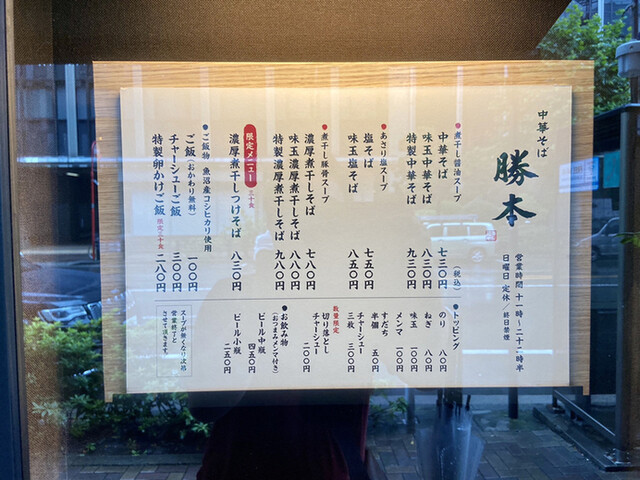 中華そば
勝本
営業時間 十一時〜二十二時半
日曜日 定休／終日禁煙
●煮干し醤油スープ
（税込）
中華そば 七三〇円
味玉中華そば 八三〇円
特製中華そば 九三〇円
●あさり塩スープ
塩そば 七五〇円
味玉塩そば 八五〇円
●煮干し豚骨スープ
濃厚煮干しそば 七八〇円
味玉濃厚煮干しそば 八八〇円
特製濃厚煮干しそば 九八〇円
限定メニュー 三十食
濃厚煮干しつけそば 八三〇円
●ご飯物 魚沼産コシヒカリ使用
ご飯（おかわり無料） 一〇〇円
チャーシューご飯 三〇〇円
特製卵かけご飯 限定三十食 二八〇円
●トッピング
のり 八〇円
ねぎ 八〇円
味玉 一〇〇円
メンマ 一〇〇円
すだち
半個 五〇円
チャーシュー
三枚 三〇〇円
数量限定
切り落とし
チャーシュー 二〇〇円
●お飲み物
（おつまみメンマ付き）
ビール中瓶 四五〇円
ビール小瓶 二五〇円
スープが無くなり次第
営業終了と
させて頂きます。